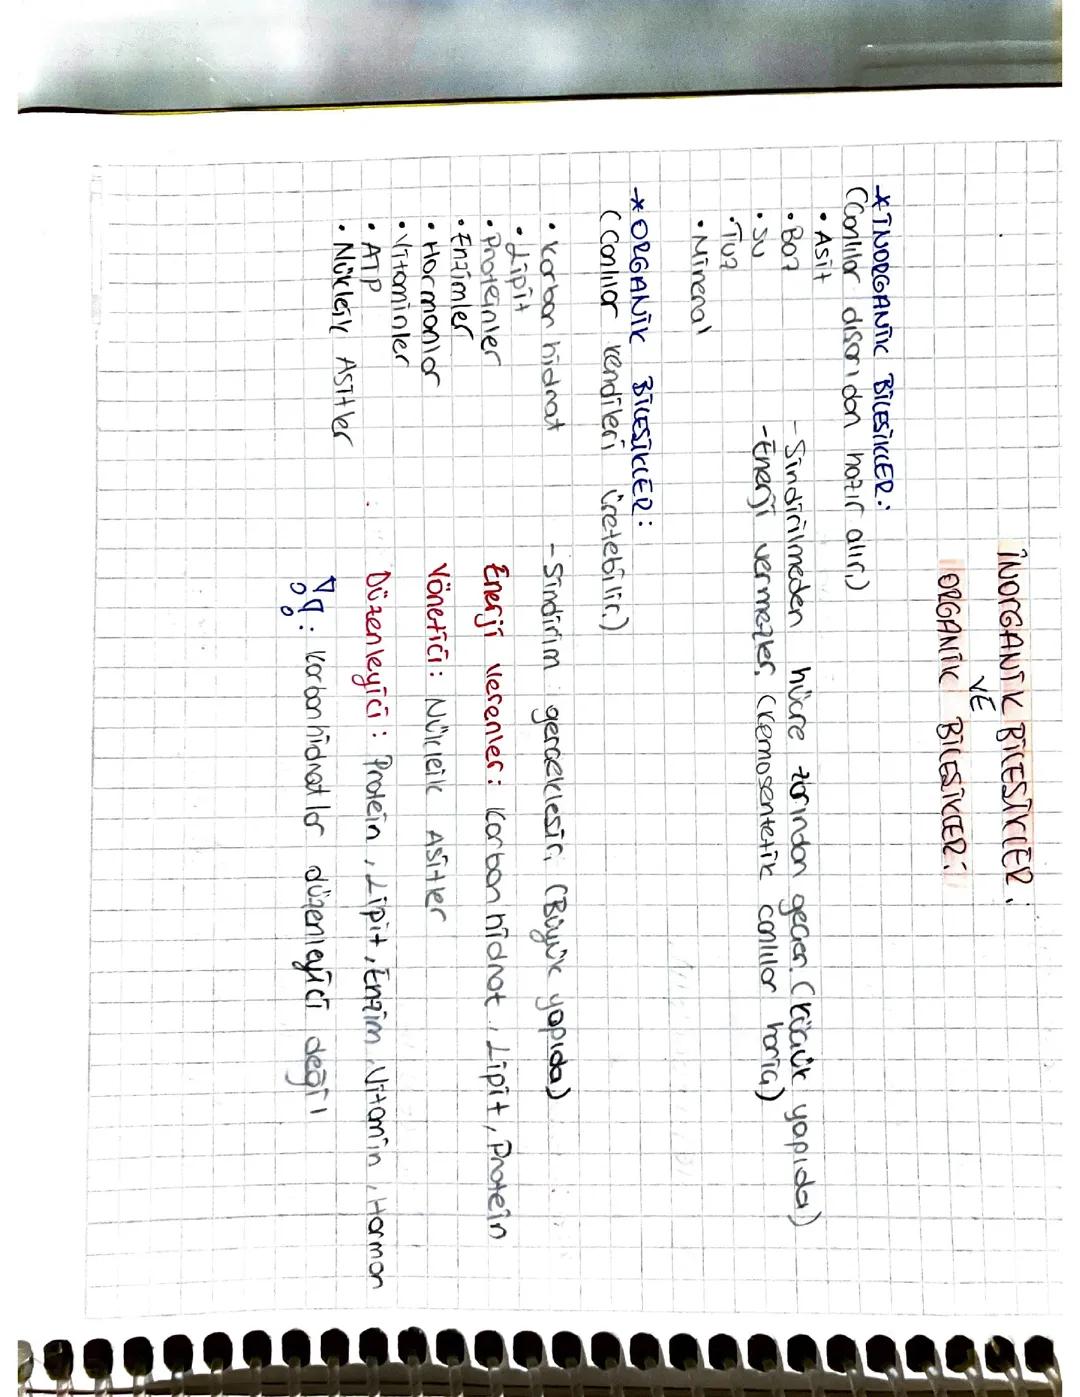 İNORGANİK BİLEŞİKLER:
VE
ORGANİK BİLEŞİKLER:
* İNORGANİK BİLEŞİKLER:
(Canlılar dışarıdan hazır alır.)
• Asit
• Baz - Sindirilmeden hücre zarından geçer. (Küçük yapıda)
• Su - Enerji vermezler. (Kemosentetik canlılar hariç)
• Tuz
• Mineral
* ORGANİK BİLEŞİKLER:
(Canlılar kendileri üretebilir.)
• Karbonhidrat - Sindirim gerçekleşir. (Büyük yapıda)
• Lipit
• Proteinler Enerji Verenler: Karbonhidrat, Lipit, Protein
• Enzimler
• Hormonlar Yönetici: Nükleik Asitler
• Vitaminler
• ATP Düzenleyici: Protein, Lipit, Enzim, Vitamin, Hormon
• Nükleik Asitler
!!: Karbonhidratlar düzenleyici değil